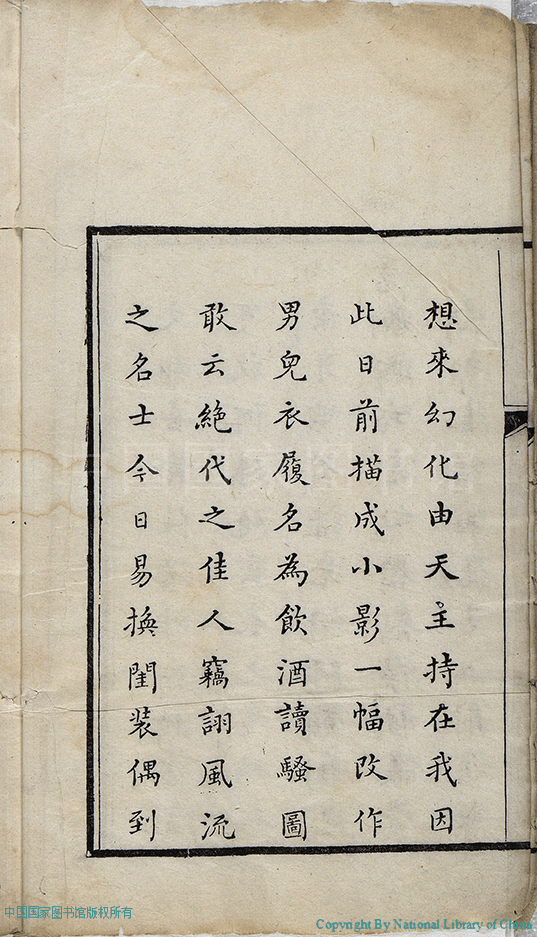 想來幻化由天主持在我因
此日前描成小影一幅改作
男兒衣履名為飲酒讀騷圖
敢云絕代之佳人竊詡風流
之名士今日易換閨裝偶到
中国国家图书馆版权所有
Copyright By National Library of China